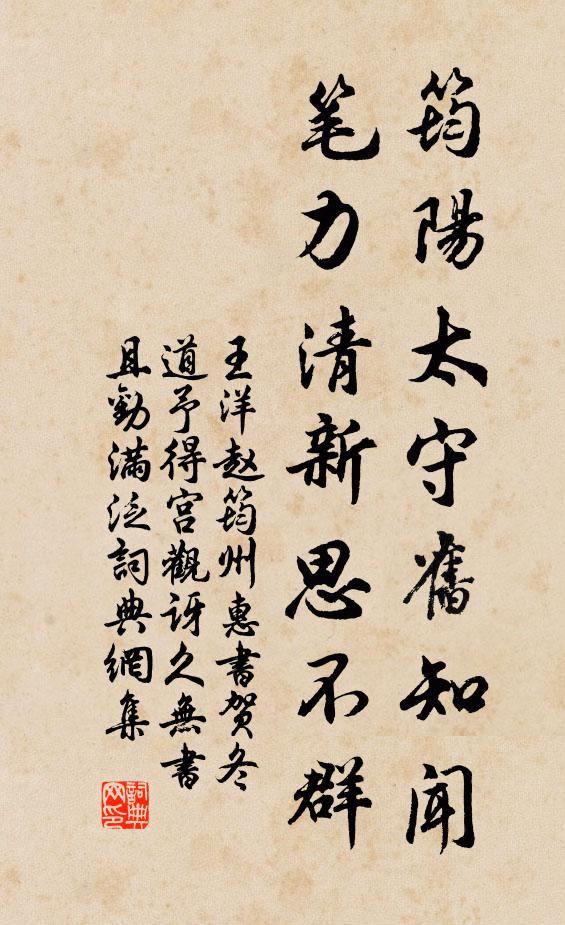 筠陽太守舊知聞
笔力清新思不群
王洋赵筠州惠書贺冬
道予得宫觀訝久無書
且勸满泛詞典網集
詞典
网印